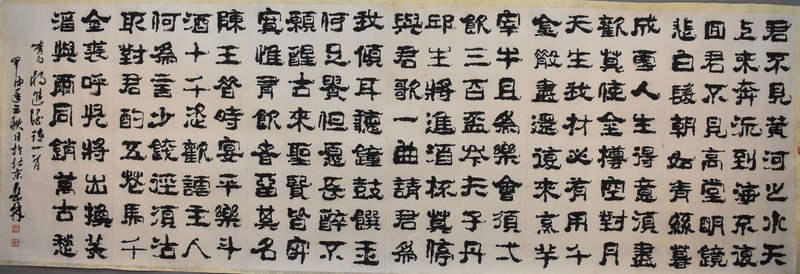 君不見黃河之水天
上來奔流到海不復
回君不見高堂明鏡
悲白髮朝如青絲暮
成雪人生得意須盡
歡莫使金樽空對月
天生我材必有用千
金散盡還復來烹羊
宰牛且為樂會須弌
飲三百盃岑夫子丹
邱生將進酒杯莫停
與君歌一曲請君為
我傾耳聽鐘鼓饌玉
何足貴但愿長醉不
願醒古來聖賢皆寂
寞惟有飲者留其名
陳王昔時宴平樂斗
酒十千恣歡謔主人
何為言少錢徑須沽
取對君酌五花馬千
金裘呼兒將出換美
酒與爾同銷萬古愁
書將進酒詩一首
甲申年立秋月於北京